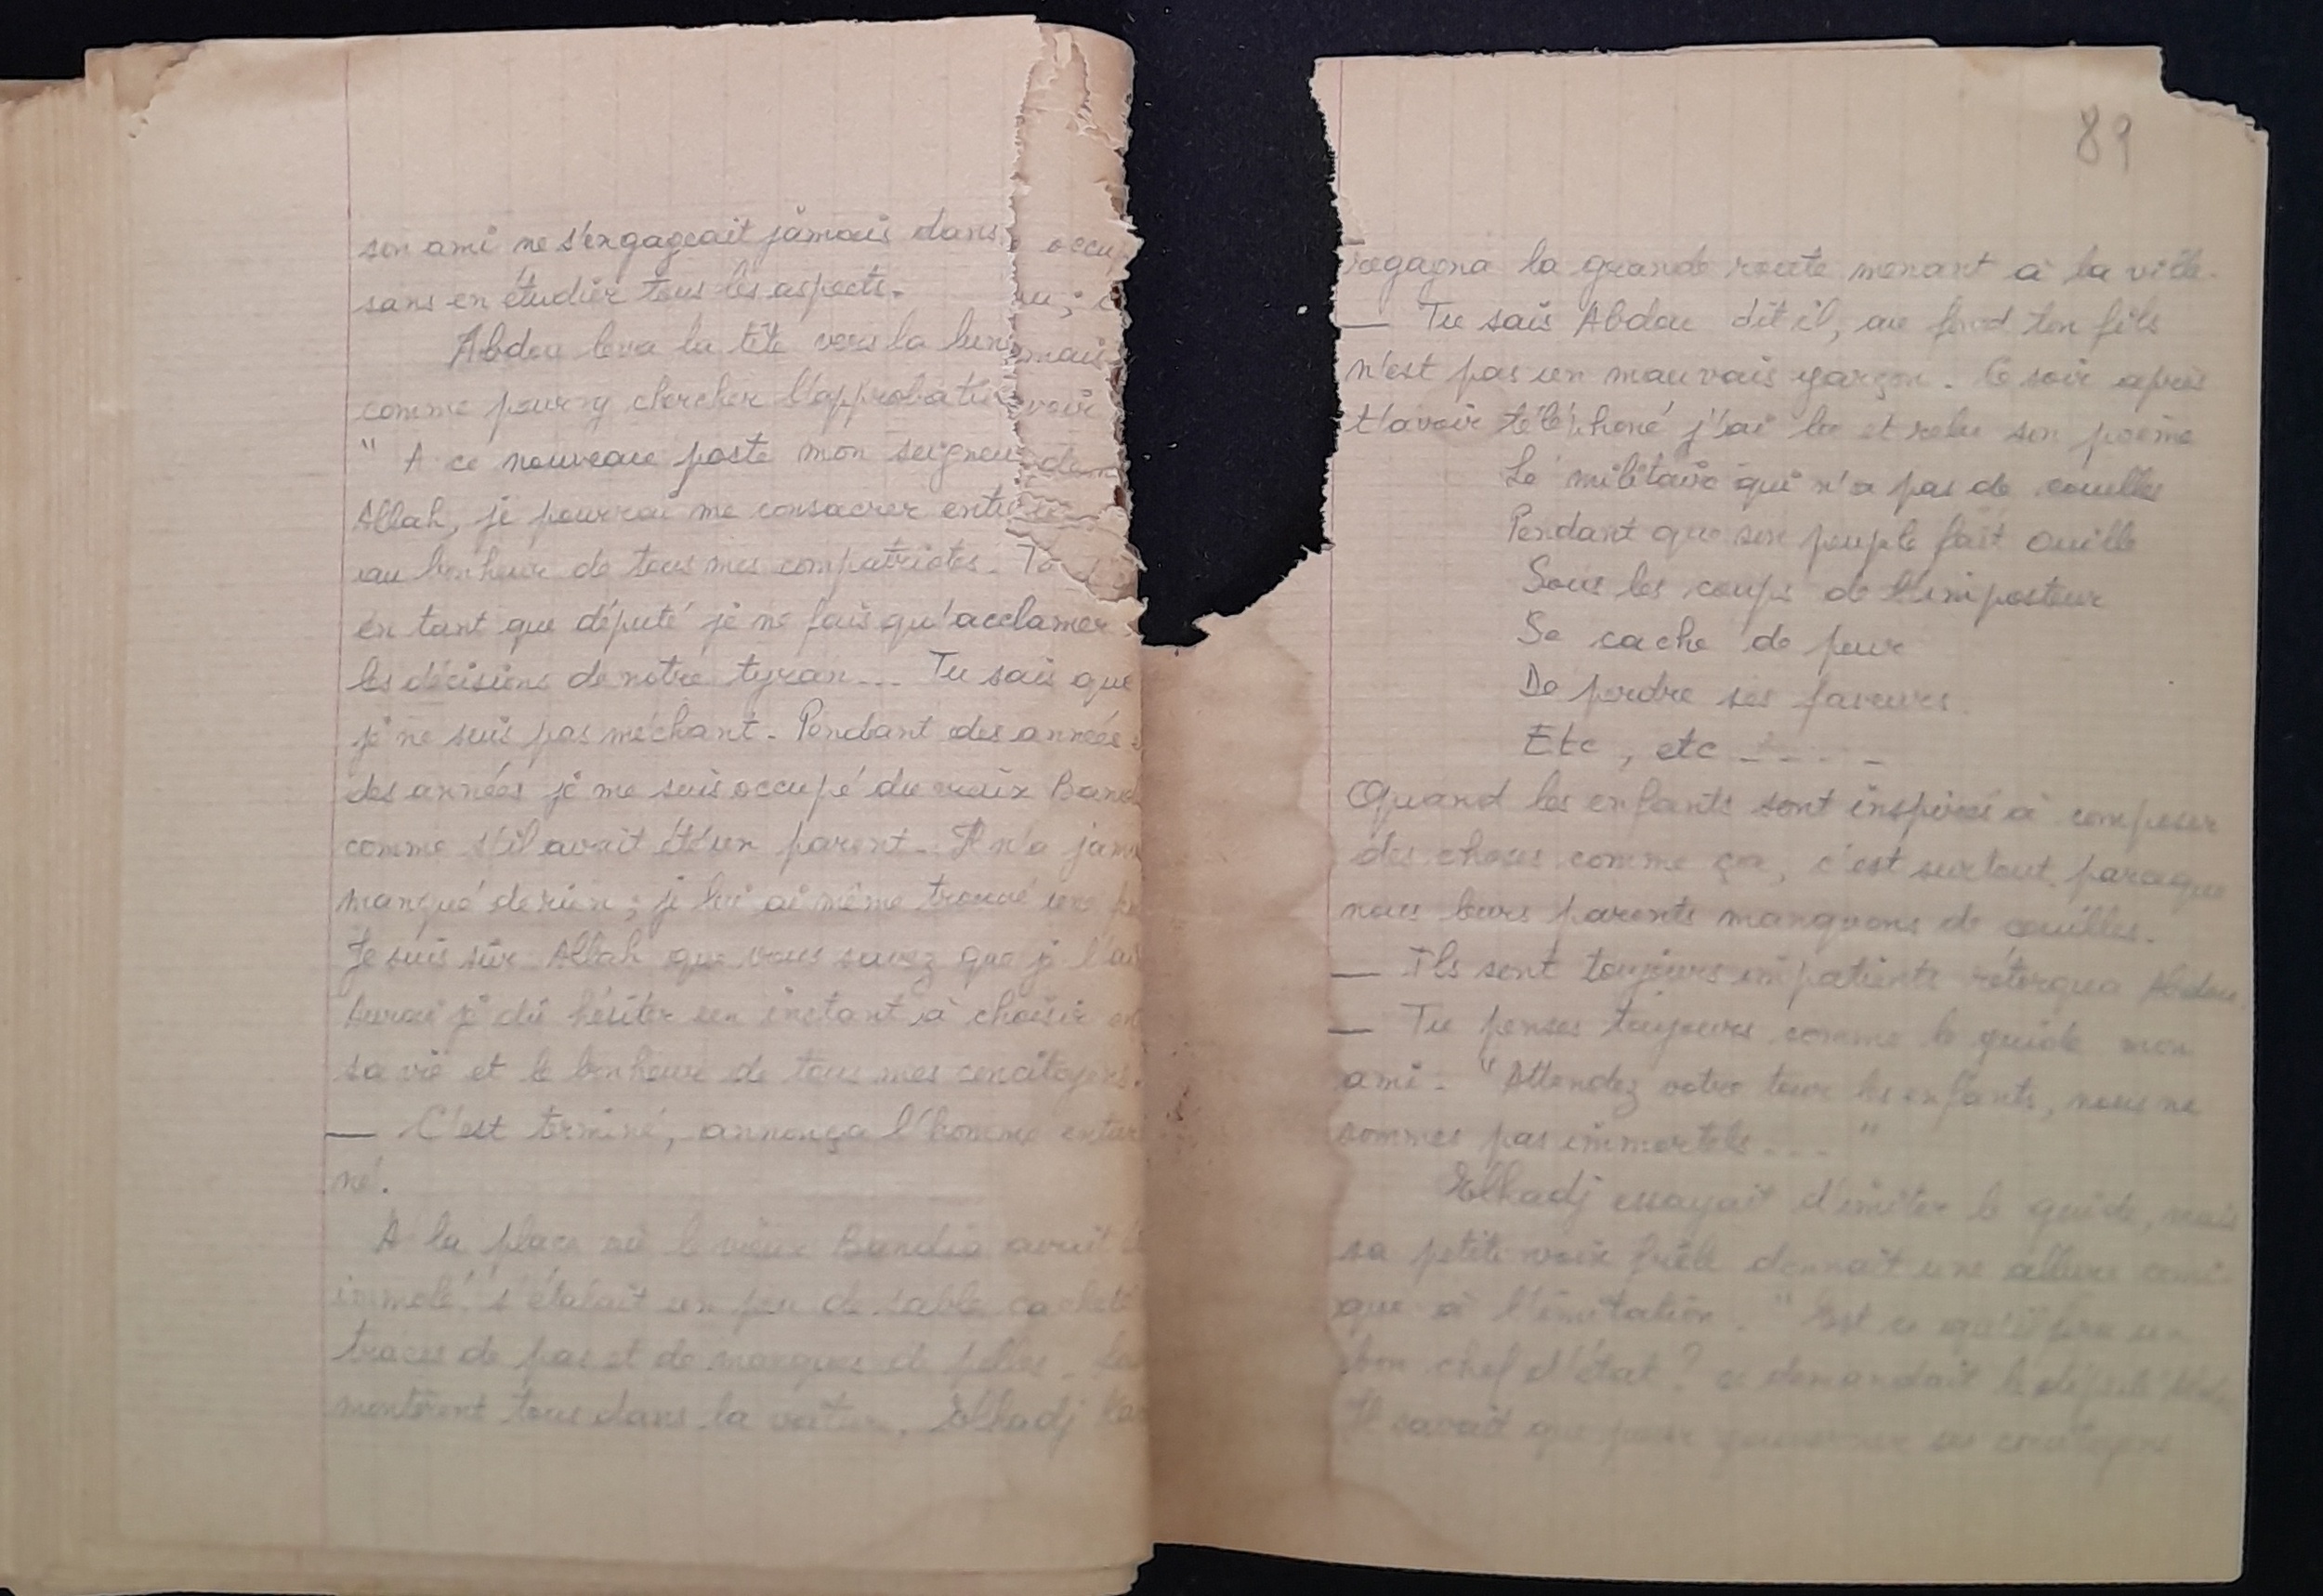 son ami ne s'engageait jamais dans
sans en étudier tous les aspects.
Abdou leva la tête vers la
comme pour y chercher
" A ce nouveau poste mon
Allah, je pourrai me consacrer
au bonheur de tous mes compatriotes.
en tant que député je ne fais qu'acclamer
les décisions de notre tyran... Tu sais que
je ne suis pas méchant. Pendant des années
des années je me suis occupé du vieux
comme s'il avait été un parent. Il n'a
manqué de rien ; je lui ai même trouvé une
Je suis sûr Allah que vous savez que je
Aurai je dû hésiter un instant à choisir
sa vie et le bonheur de tous mes concitoyens.
— C'est terminé, annonça l'homme
né.
A la place où le vieux Bandia avait
immolé s'étalait un peu de sable
traces de pas et de marques de pelles.
montèrent tous dans la voiture. Elhadj
occu
mais
voir
89
regagna la grande route menant à la ville.
— Tu sais Abdou dit il, au fond ton fils
n'est pas un mauvais garçon. Ce soir après
t'avoir téléphoné j'ai lu et relu son poème
Le militaire qui n'a pas de couilles
Pendant que son peuple fait ouille
Sous les coups de l'imposteur
Se cache de peur
De perdre ses faveurs.
Etc, etc .....
Quand les enfants sont inspirés à composer
des choses comme ça, c'est surtout parceque
nous leurs parents manquons de couilles.
— Ils sont toujours impatients rétorqua Abdou.
— Tu penses toujours comme le guide mon
ami. "Attendez votre tour les enfants, nous ne
sommes pas immortels... "
Elhadj essayait d'imiter le guide, mais
sa petite voix frêle donnait une allure comi-
que à l'imitation. " Est ce qu'il fera un
bon chef d'état ? se demandait le député
Il savait que pour gouverner ses concitoyens